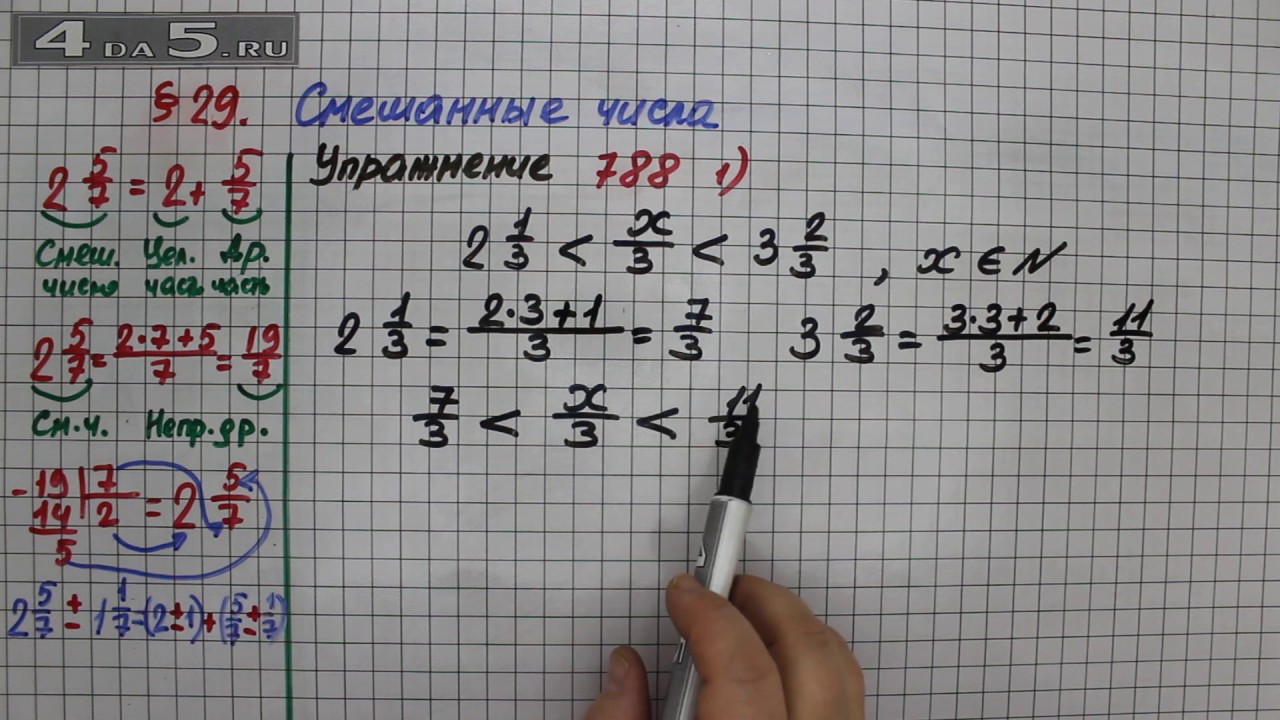 4DA5.RU
§ 29. Смешанные числа
2 5/7 = 2 + 5/7
Смеш. Цел. Др.
число часть часть
2 5/7 = (2·7+5)/7 = 19/7
См.ч. Непр.др.
- 19 | 7
14 | 2 = 2 5/7
5
2 5/7 ± 1 1/7 = (2 ± 1) + (5/7 ± 1/7)
Упражнение 788 1)
2 1/3 < x/3 < 3 2/3 , x ∈ N
2 1/3 = (2·3+1)/3 = 7/3 3 2/3 = (3·3+2)/3 = 11/3
7/3 < x/3 < 11/3